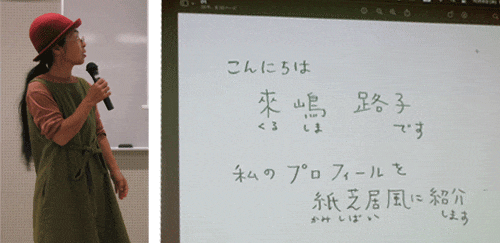 こんにちは
來嶋 路子
くる しま です
私のプロフィールを
紙芝居風に紹介
かみしばい します